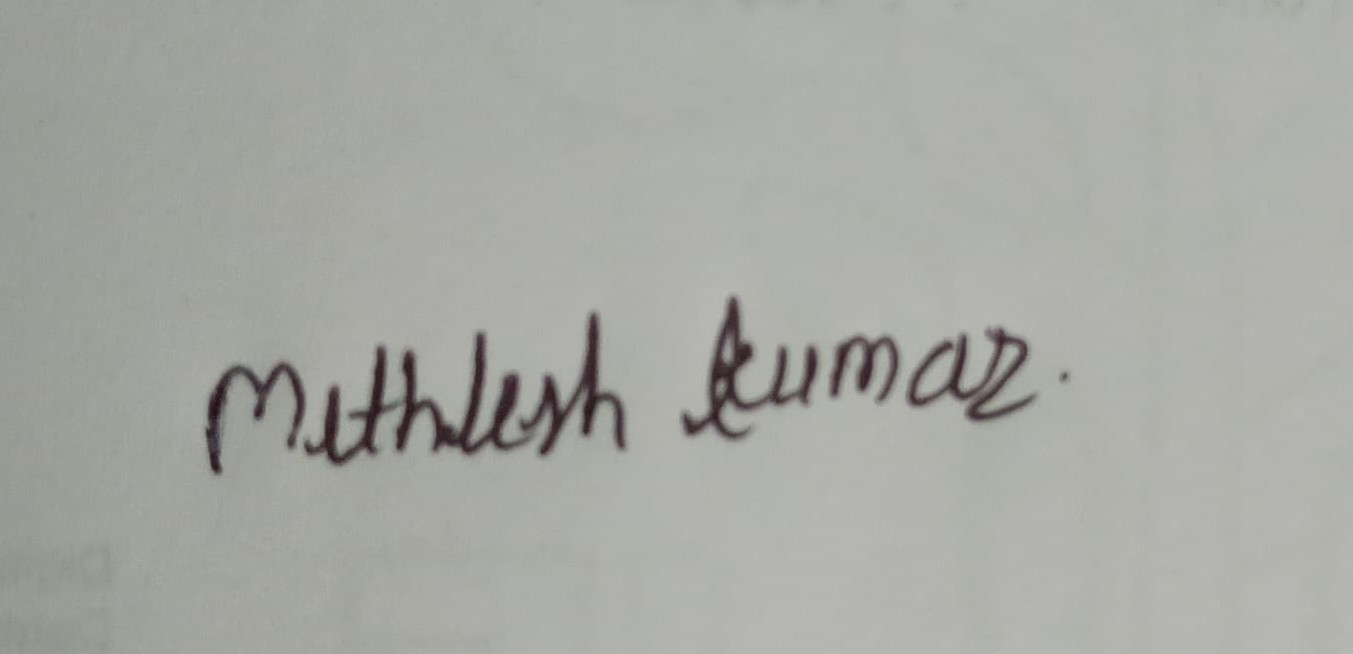 Mithlesh kumar.